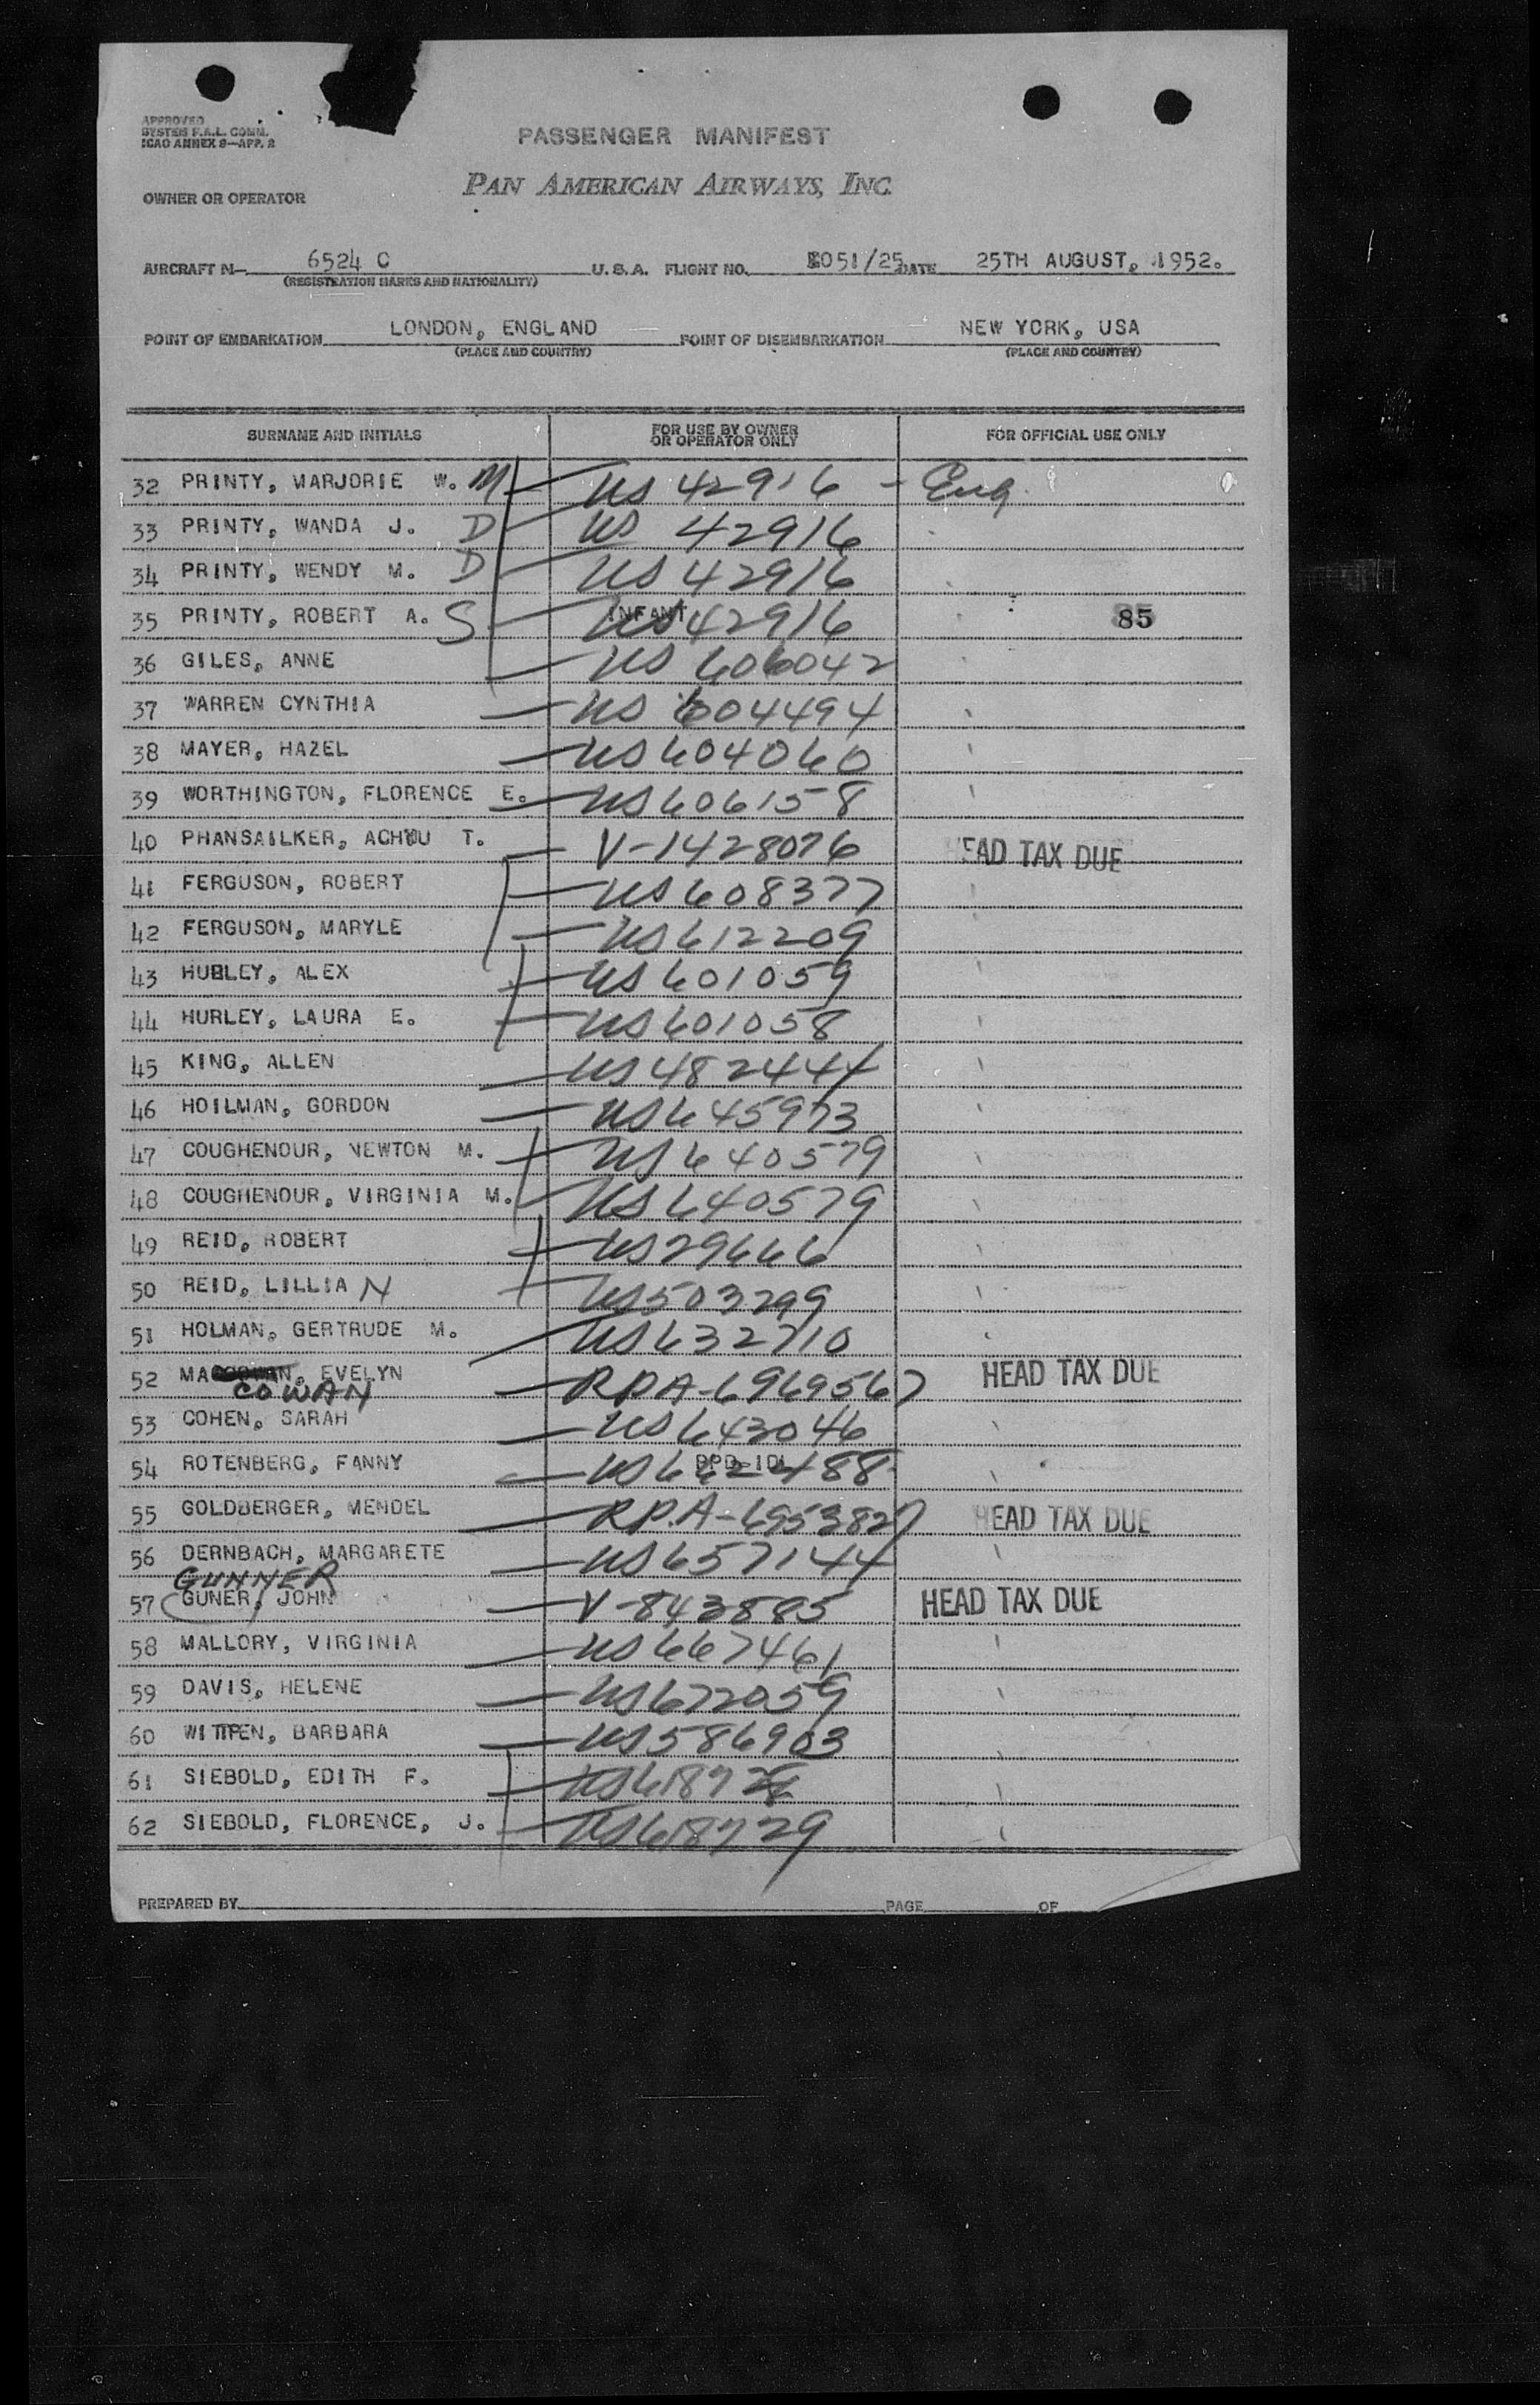 APPROVED
SYSTEM F.A.L. COMM.
ICAO ANNEX 9—APP. 2
PASSENGER MANIFEST
PAN AMERICAN AIRWAYS, INC.
OWNER OR OPERATOR
AIRCRAFT N— 6524 C U.S.A. FLIGHT NO. 1051/25 DATE 25TH AUGUST, 1952.
(REGISTRATION MARKS AND NATIONALITY)
POINT OF EMBARKATION LONDON, ENGLAND POINT OF DISEMBARKATION NEW YORK, USA
(PLACE AND COUNTRY) (PLACE AND COUNTRY)
SURNAME AND INITIALS FOR USE BY OWNER OR OPERATOR ONLY FOR OFFICIAL USE ONLY
32 PRINTY, MARJORIE W. M US 42916 - Eng.
33 PRINTY, WANDA J. D US 42916
34 PRINTY, WENDY M. D US 42916
35 PRINTY, ROBERT A. S INFANT US 42916 85
36 GILES, ANNE US 606042
37 WARREN CYNTHIA US 604494
38 MAYER, HAZEL US 604060
39 WORTHINGTON, FLORENCE E. US 606158
40 PHANSAILKER, ACHYU T. V-1428076 HEAD TAX DUE
41 FERGUSON, ROBERT US 608377
42 FERGUSON, MARYLE US 612209
43 HURLEY, ALEX US 601059
44 HURLEY, LAURA E. US 601058
45 KING, ALLEN US 482444
46 HOILMAN, GORDON US 645973
47 COUGHENOUR, NEWTON M. US 640579
48 COUGHENOUR, VIRGINIA M. US 640579
49 REID, ROBERT US 29666
50 REID, LILLIAN US 503299
51 HOLMAN, GERTRUDE M. US 632710
52 MA , EVELYN RPA-696956 HEAD TAX DUE
COWAN
53 COHEN, SARAH US 643046
54 ROTENBERG, FANNY US 622488
55 GOLDBERGER, MENDEL RP.A-695382 HEAD TAX DUE
56 DERNBACH, MARGARETE US 657144
GUNNER
57 GUNER, JOHN V-843885 HEAD TAX DUE
58 MALLORY, VIRGINIA US 667461
59 DAVIS, HELENE US 672059
60 WITTPEN, BARBARA US 586903
61 SIEBOLD, EDITH F.
62 SIEBOLD, FLORENCE, J. US 618729
PREPARED BY PAGE OF